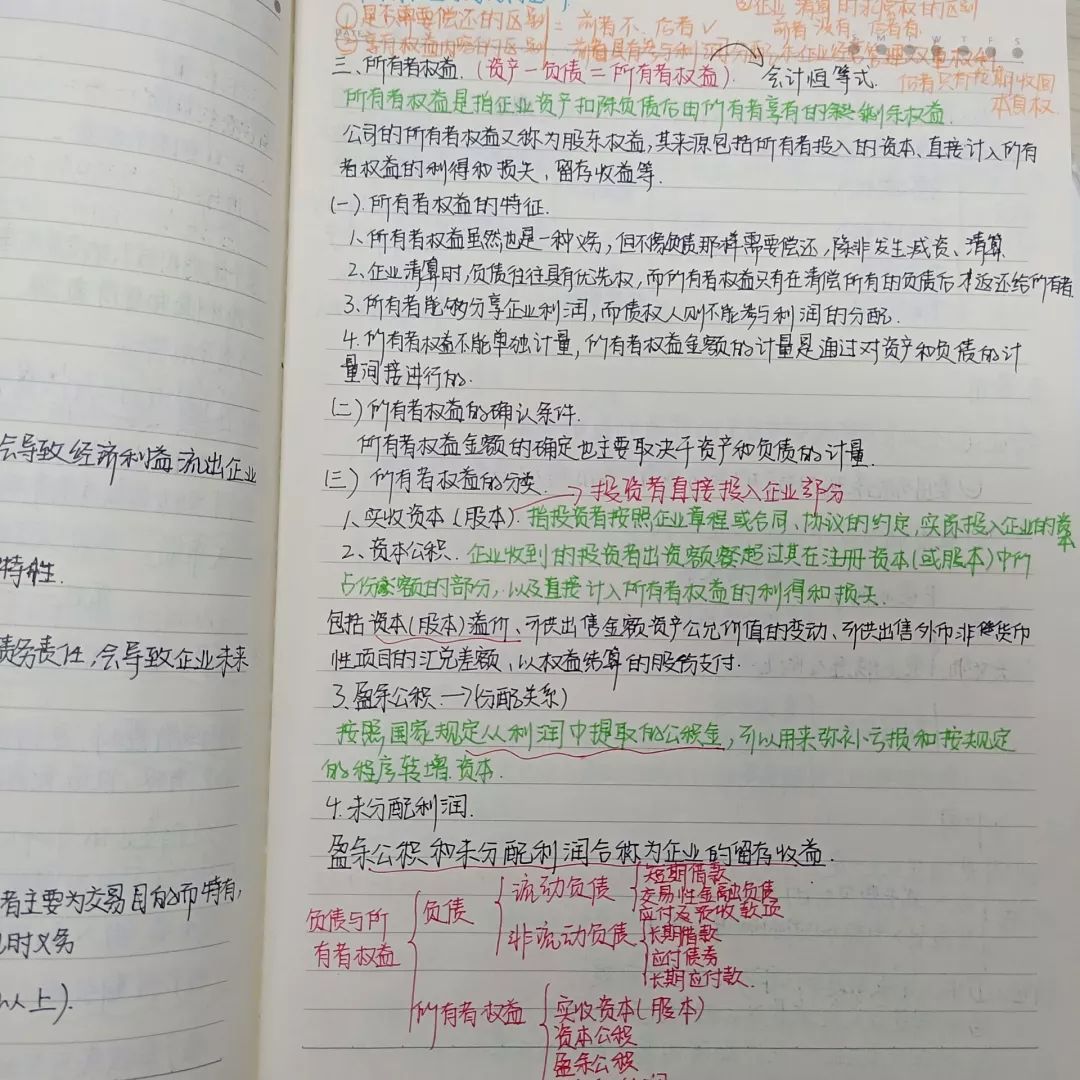 会导致经济利益流出企业
特性.
债务责任,会导致企业未来
者主要为交易目的而持有,
现时义务
以上).
①是不需要偿还的区别= 前者不、后者✓
②企业清算时求偿权的区别
前者没有、后者有
三、所有者权益.(资产-负债=所有者权益). 会计恒等式.
后者只有按期收回
本息权.
所有者权益是指企业资产扣除负债后由所有者享有的剩余权益.
公司的所有者权益又称为股东权益,其来源包括所有者投入的资本、直接计入所有
者权益的利得和损失、留存收益等.
(一).所有者权益的特征.
1、所有者权益虽然也是一种义务,但不像负债那样需要偿还,除非发生减资、清算
2、企业清算时,负债往往具有优先权,而所有者权益只有在清偿所有的负债后才返还给所有者
3.所有者能够分享企业利润,而债权人则不能参与利润的分配.
4.所有者权益不能单独计量,所有者权益金额的计量是通过对资产和负债的计
量间接进行的.
(二)所有者权益的确认条件.
所有者权益金额的确定也主要取决于资产和负债的计量.
(三)所有者权益的分类. →投资者直接投入企业部分
1、实收资本(股本).指投资者按照企业章程或合同、协议的约定,实际投入企业的资本
2、资本公积.企业收到的投资者出资额超过其在注册资本(或股本)中所
占份额的部分,以及直接计入所有者权益的利得和损失.
包括资本(股本)溢价、可供出售金额资产公允价值的变动、可供出售外币非货币
性项目的汇兑差额、以权益结算的股份支付.
3.盈余公积.→(分配关系)
按照国家规定从利润中提取的公积金,可以用来弥补亏损和按规定
的程序转增资本.
4.未分配利润.
盈余公积和未分配利润合称为企业的留存收益.
负债与所有者权益
负债
流动负债
短期借款
交易性金融负债
应付及预收款项
非流动负债
长期借款
应付债券
长期应付款.
所有者权益
实收资本(股本)
资本公积
盈余公积